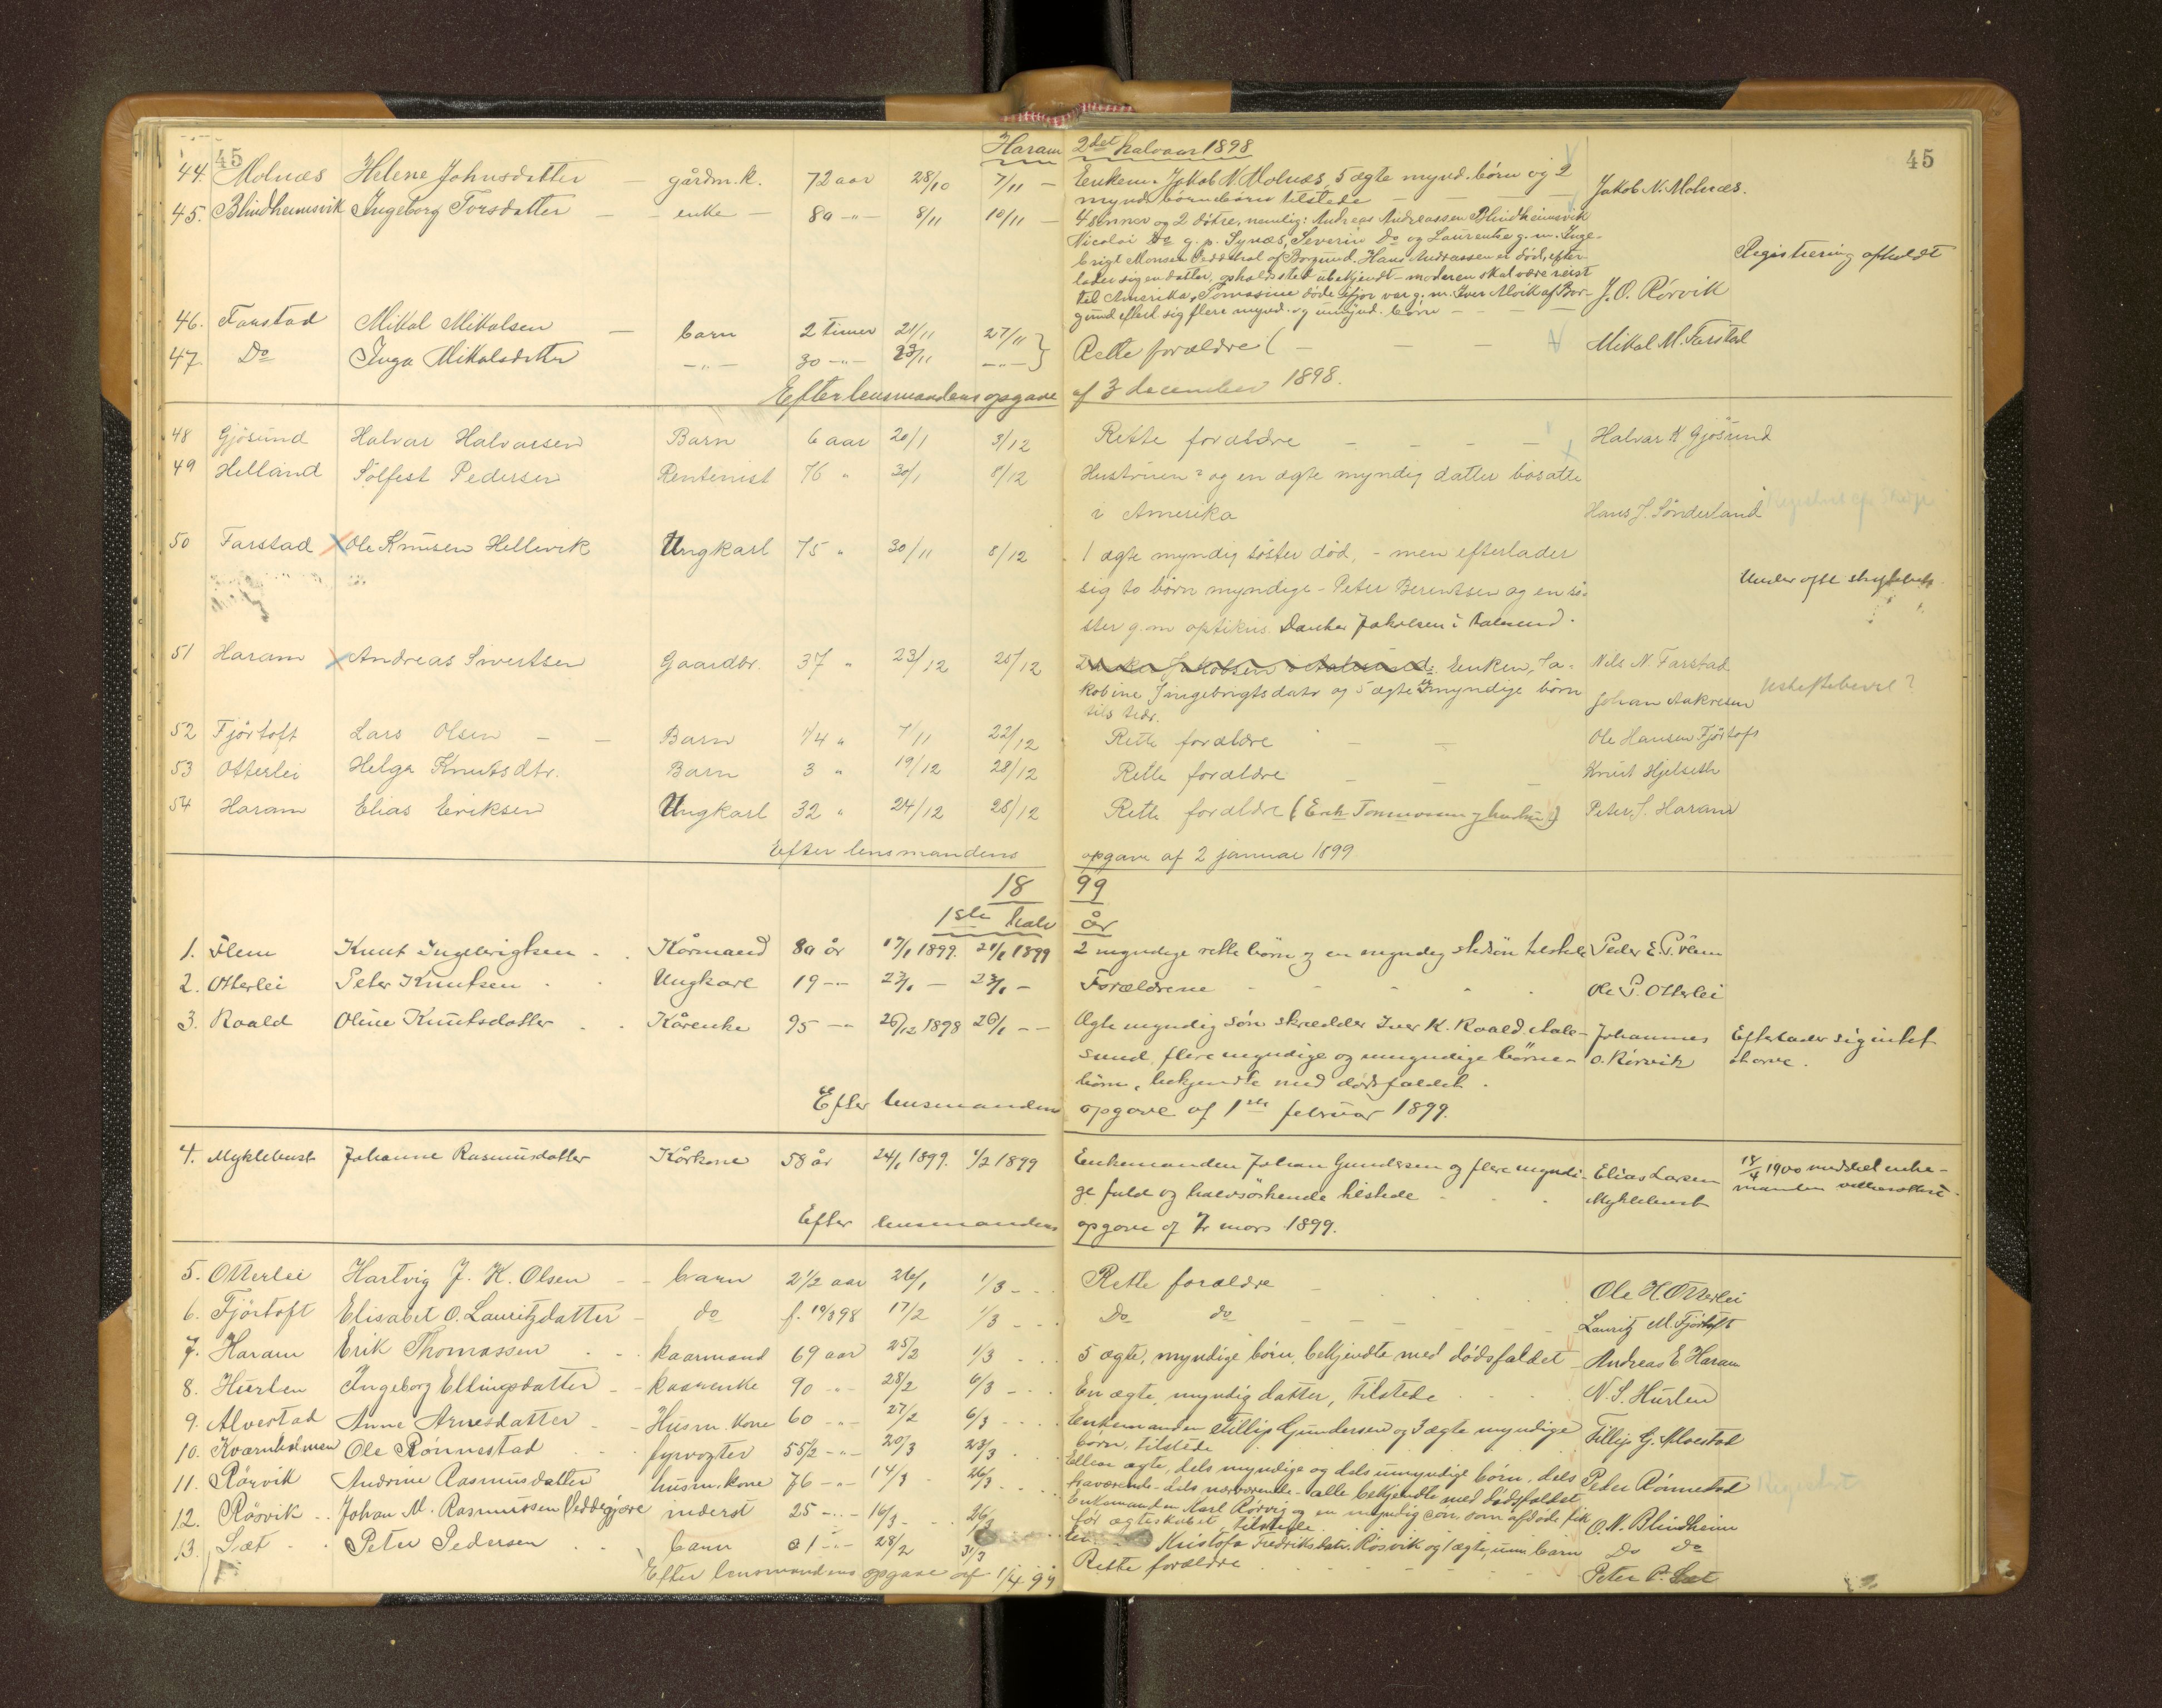 45 Haram 2det halvaar 1898 45
44. Molnæs Helene Johnsdatter — gårdm.k. 72 aar 28/10 7/11 — Enkem. Jakob N. Molnæs, 5 ægte mynd. børn og 2 Jakob N. Molnæs.
mynd. børnebørn tilstede
45. Blindheimsvik Ingeborg Torsdatter — enke — 80 -"- 8/11 10/11 — 4 sønner og 2 døtre, nemlig: Andreas Andreassen Blindheimsvik
Nicolai Do g. p. Synæs, Severin Do og Laurentse g. m. Inge-
brigt Monsen af Borgund. Hans Andreassen er död, efter- Registrering afholdt
lader sig en datter, opholdssted ubekjendt - moderen skal være reist
til Amerika, Tomasine døde ifjor var g. m. Iver Alvik af Bor- J. O. Rörvik
gund efterl. sig flere mynd. og umynd. børn
46. Farstad Mikal Mikalsen — barn 2 timer 21/11 27/11
47 Do Inga Mikalsdatter -"- 30 -"- 23/11 -"- } Rette forældre ( — — — Mikal M. Farstad
Efter lensmandens opgave af 3 december 1898.
48 Gjøsund Halvar Halvarsen Barn 6 aar 20/1 3/12 Rette forældre — — — — Halvar K Gjøsund
49 Helland Sølfest Pedersen Rentenist 76 " 30/1 8/12 Hustruen og en ægte myndig datter bosatte
i Amerika Hans J. Sønderland
50 Farstad Ole Knusen Hellevik Ungkarl 75 " 30/11 8/12 1 ægte myndig søster død, - men efterlader
sig to børn myndige - Peter Berentsen og en sø- Under offl skiftebeh.
ster g. m optikus Danker Jakobsen i Aalesund.
51 Haram Andreas Sivertsen Gaardbr. 37 " 23/12 25/12 Enken, Ja- Nils N. Farstad
kobine Ingebrigtsdatr og 5 ægte umyndige børn Johan Aakresen
tilstede.
52 Fjørtoft Lars Olsen — — Barn 1/4 " 7/11 22/12 Rette forældre — — Ole Hansen Fjørtoft
53 Otterlei Helga Knutsdtr. Barn 3 " 19/12 28/12 Rette forældre — — Knut Hjelseth
54 Haram Elias Eriksen Ungkarl 32 " 24/12 28/12 Rette forældre (Erik Tomassen og hustru) Peter S. Haram
Efter lensmandens opgave af 2 januar 1899
18 99
1ste halv år
1. Flem Knut Ingebrigtsen Kårmand 80 år 17/1 1899. 21/1 1899 2 myndige rette børn og en myndig stedsøn tilstede Peder E. P. Flem
2. Otterlei Peter Knutsen Ungkarl 19 -"- 23/1 — 23/1 — Forældrene Ole P. Otterlei
3. Roald Oline Knutsdatter Kårenke 95 -"- 26/12 1898 26/1 — Ægte myndig søn skrædder Iver K. Roald, Aale- Johannes Efterlader sig intet
sund, flere myndige og umyndige børne- O. Rörvik at arve.
børn, bekjendte med dödsfaldet.
Efter lensmandens opgave af 1ste februar 1899.
4. Myklebust Johanne Rasmusdatter Kårkone 58 år 24/1 1899. 1/2 1899 Enkemanden Johan Gundersen og flere myndi- Elias Larsen 18/4 1900 meddelt enke-
ge hel og halvsöskende tilstede Myklebust manden
Efter lensmandens opgave af 7 mars 1899.
5. Otterlei Hartvig J. K. Olsen — barn 2 1/2 aar 26/1 1/3 - Rette forældre Ole H. Otterlei
6. Fjørtoft Elisabet O. Lauritzdatter — do f. 19/3 98 17/2 1/3 - Do do Lauritz M. Fjørtoft
7. Haram Erik Thomassen kaarmand 69 aar 25/2 1/3 5 ægte, myndige børn, bekjendte med dödsfaldet Andreas E. Haram
8. Hurlen Ingeborg Ellingsdatter kaarenke 90 -"- 28/2 6/3 En ægte, myndig datter, tilstede N. S. Hurlen
9. Alvestad Anne Arnesdatter Husm. kone 60 -"- 27/2 6/3 Enkemanden Fillip Gundersen og 3 ægte myndige Fillip G. Alvestad
børn, tilstede
10. Kværnholmen Ole Rønnestad fyrvogter 55 1/2 -"- 20/3 23/3 Elleve ægte, dels myndige og dels umyndige børn, dels Peder Rønnestad
fraværende - dels nærværende - alle bekjendte med dødsfaldet
11. Rørvik Andrine Rasmusdatter husm. kone 76 -"- 14/3 26/3 Enkemanden Karl Rørvig og en myndig søn, som afdøde fik O. N. Blindheim
før ægteskabet, tilstede
12. Røsvik Johan M. Rasmussen inderst 25 -"- 16/3 26/3 Kristofa Fredriksdatr. Røsvik og 1 ægte, um. barn Do Do
13. Sæt Peter Pedersen barn 0 1 -"- 28/2 31/3 Rette forældre Peter P. Sæt
Efter lensmandens opgave af 1/4 99